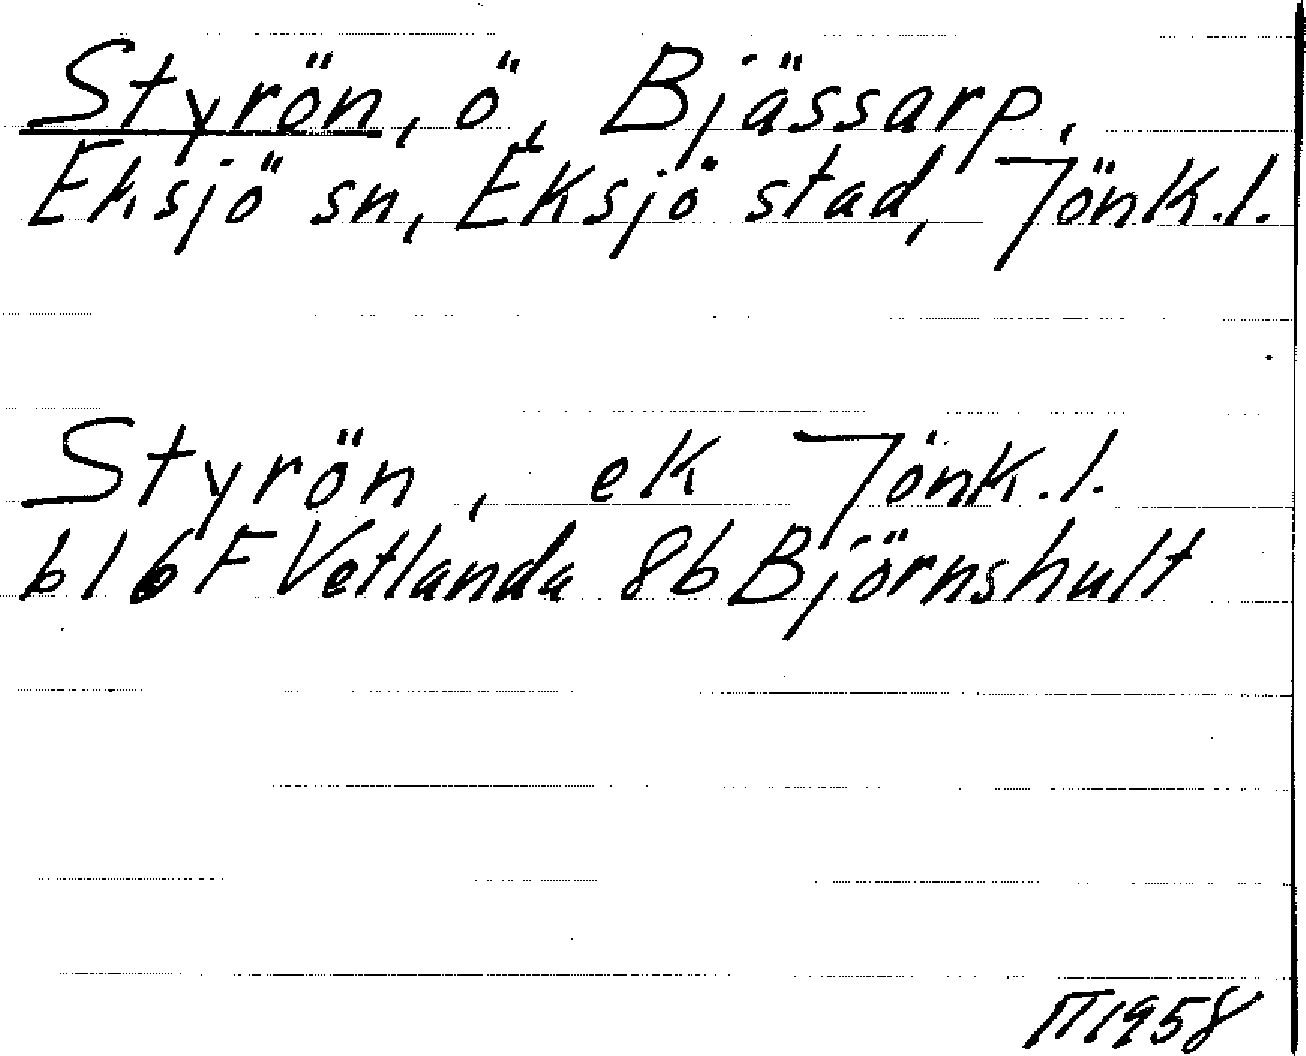 Styrön, ö, Bjässarp,
Eksjö sn, Eksjö stad, Jönk.l.
Styrön, ek Jönk.l.
bl 6F Vetlanda 8b Björnshult
1958